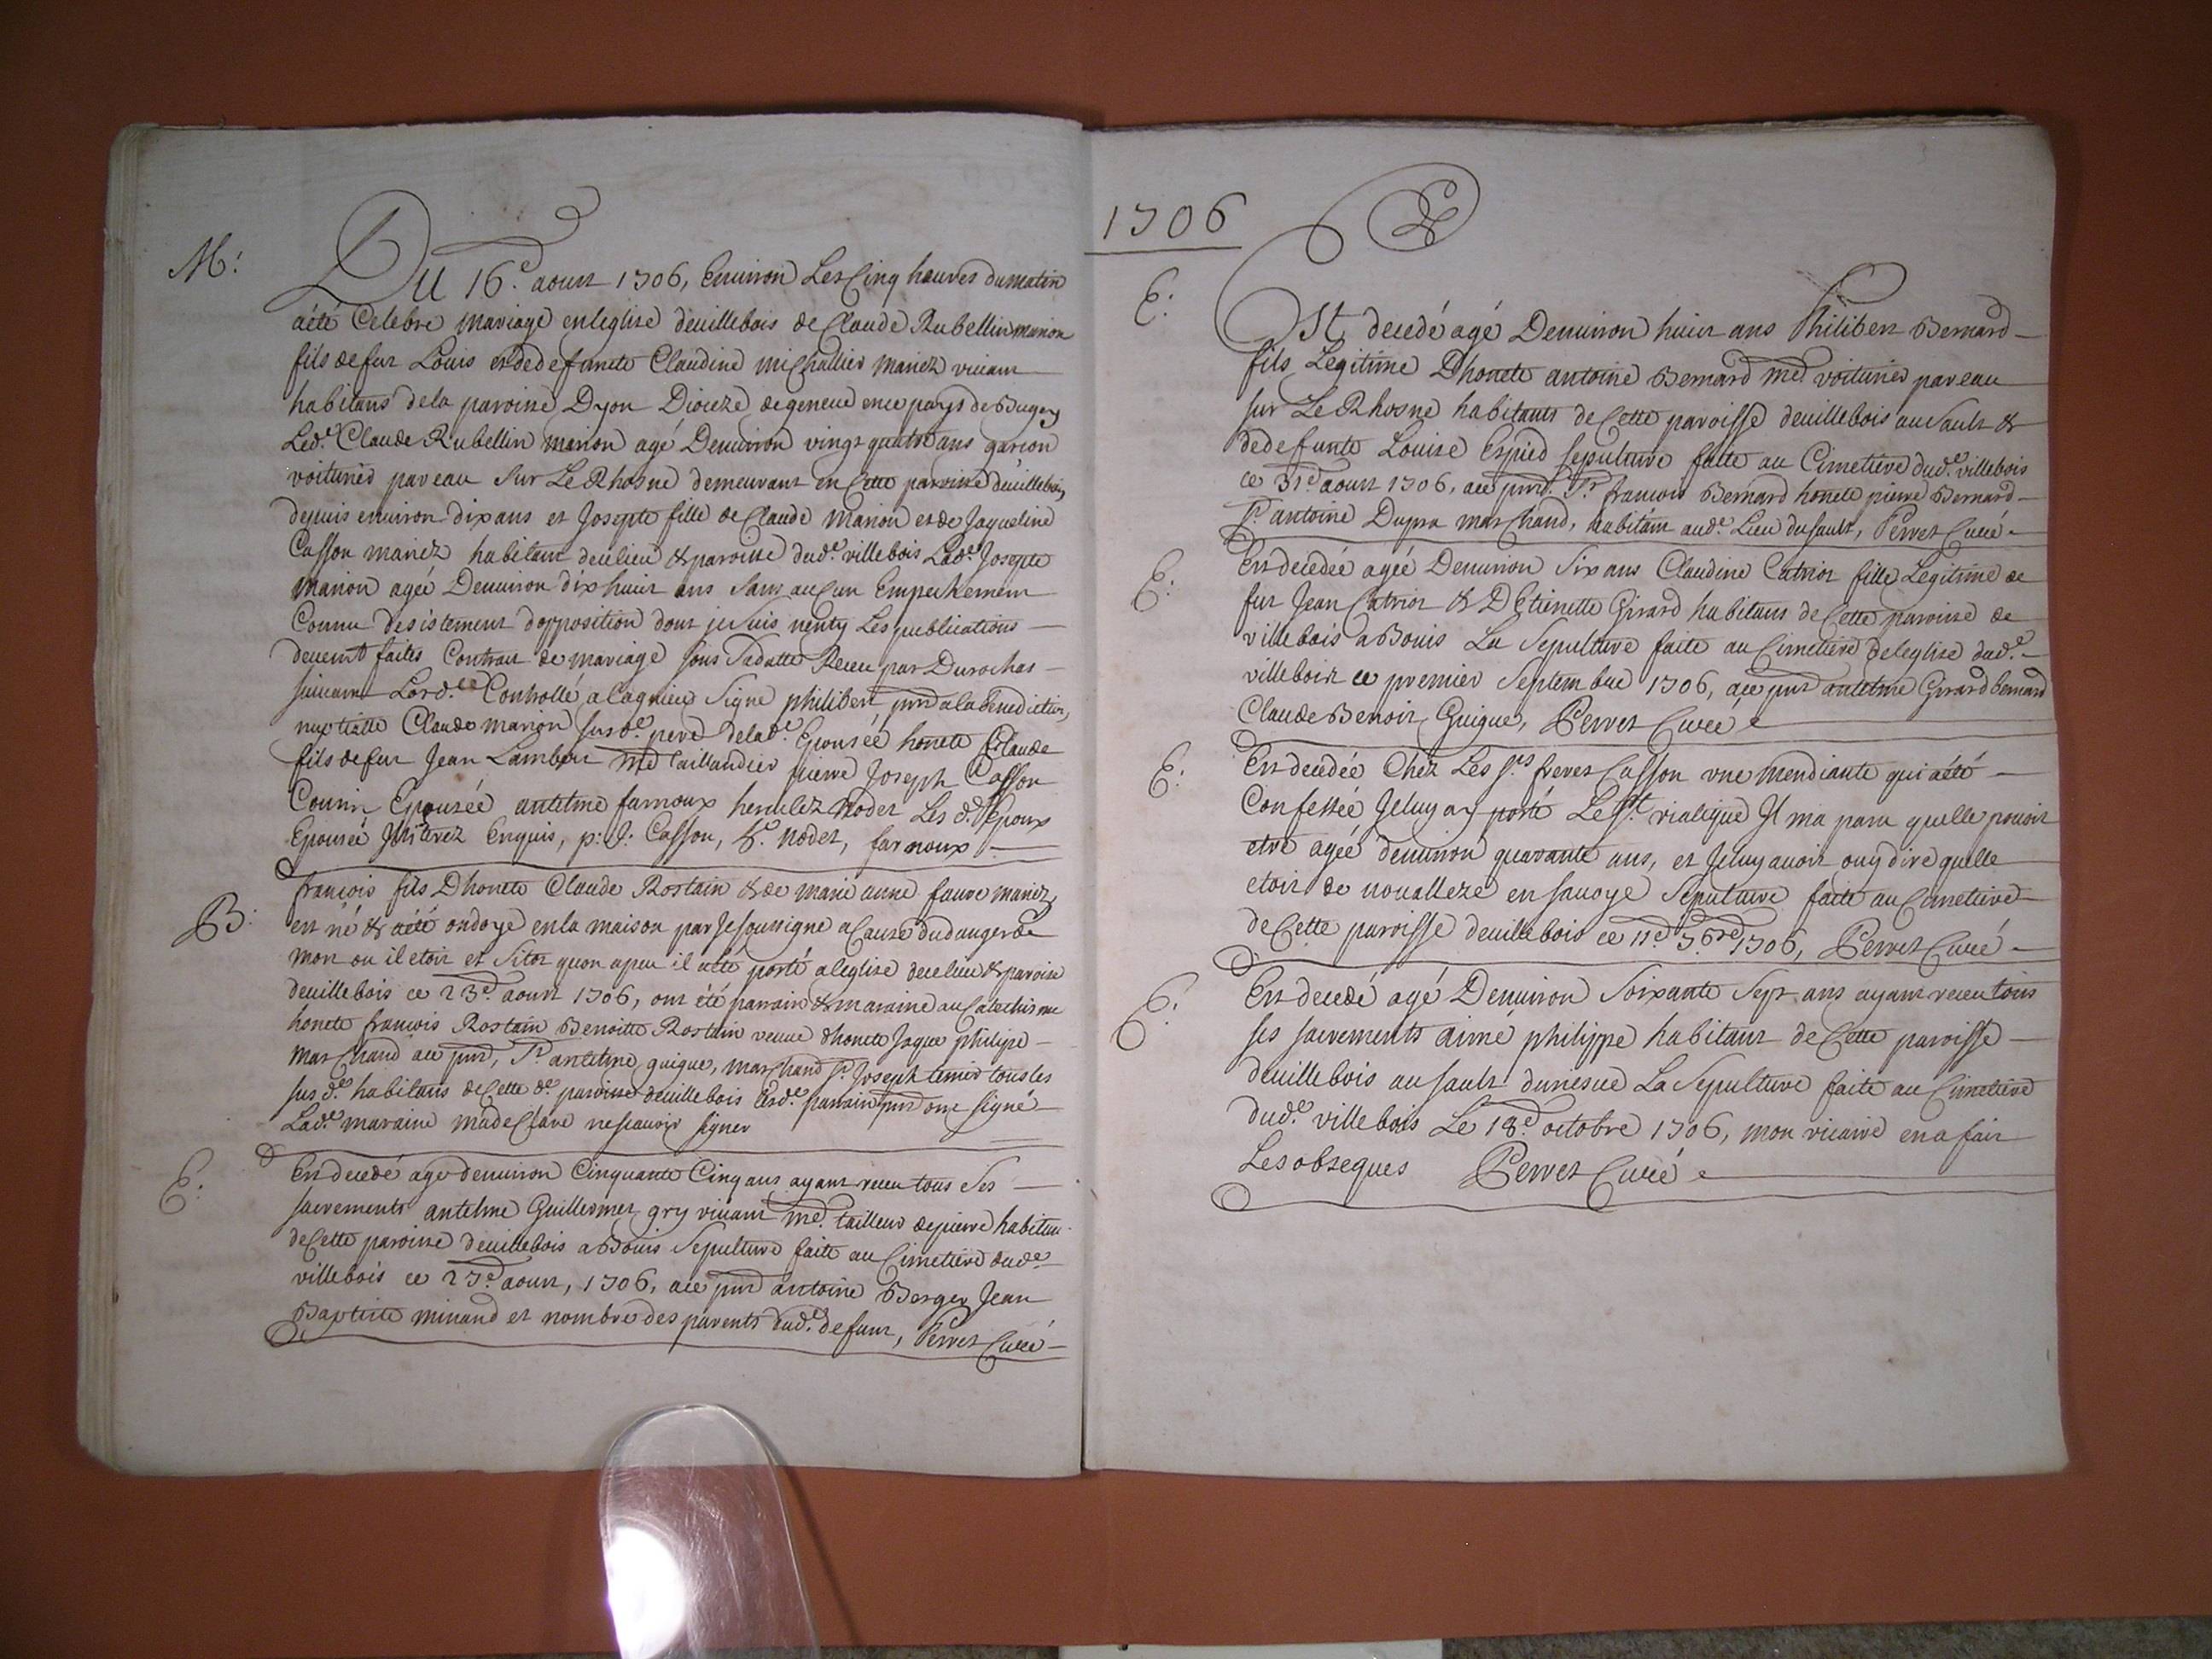 M:
Du 16.e aoust 1706, Environ Les Cinq heures du matin
a été Celebre mariage en leglise deuillebois de Claude Rubellin marion
fils de fut Louis et de defuncte Claudine michallier mariez viuant
habitans de la paroisse Dyon Dioieze de geneue en ce pays de Bugey
Led.e Claude Rubellin marion agé Denuiron vingt quatre ans garçon
voiturier par eau sur Le Rhosne demeurant en Cette paroisse deuillebois
depuis enuiron dix ans et Josepte fille de Claude Marion et de Jaqueline
Casson mariez habitant deu lieu & paroisse dud.e villebois Lad.e Josepte
marion agée Denuiron dix huit ans sans auCun EmpesKement
Connu desistement dopposition dont je suis nenty Les publications
deuemt faites Contrat de mariage sous Sadatte Receu par Durochas
suivant Lord.ce Controllé a lagnieu Signe philibert pnt a la benediction
nuptialle Claude marion susd.e pere de lad.e Epousée honete Claude
fils de fut Jean Lambert md taillandier pierre Joseph Casson
Cousin Epousée antelme farnoux herculez Nodet Les d. Epoux
Epousée Jlliterez Enquis, p: J: Casson, h. nodet, farnoux
B:
françois fils Dhonete Claude Rostain & de marie anne faure mariez
est né & a été ondoyé en la maison par Je soussigne a Cause du danger de
mort ou il etoit et Sitot quon a peu il a été porté a leglise de ce lieu & paroisse
deuillebois ce 23.e aoust 1706, ont été parrain & maraine au CatecHisme
honete françois Rostain Benoitte Rostain veuue dhonete Jaque philipe
marChand ace pnt, Sr antelme guigue, marChand Sr Joseph tenier tous les
sus d.e habitans de Cette d.e paroisse deuillebois Lesd.e parrain pnt ont signé
Lad.e maraine ma deClaré ne scauoir signer
E:
Est decedé age denuiron Cinquante Cinq ans ayant receu tous Ses
sacrements antelme Guillermet gry viuant md. tailleur de pierre habitan
de Cette paroisse deuillebois a Bouis Sepulture faite au Cimetiere dud.e
villebois ce 27.e aoust, 1706, ace pnt antoine Berger Jean
Baptiste minand et nombre des parents dud.e defunt, Perret Curé
1706
E:
Est decedé agé Denuiron huit ans Philibert Bernard
fils Legitime Dhonete antoine Bernard md voiturier par eau
sur Le Rhosne habitants de Cette paroisse deuillebois au Sault &
de defunte Louise Espied sepulture faite au Cimetiere dud.e villebois
ce 31.e aoust 1706, ace pnt. Sr françois Bernard honete pierre Bernard
Sr antoine Dupra marChand, habitant aud.e Lieu du sault, Perret Curé
E:
Est decedée agée Denuiron Six ans Claudine Catriot fille Legitime de
fut Jean Catriot & DEtienette Girard habitans de Cette paroisse de
villebois a Bouis La Sepulture faite au Cimetiere de leglise dud.e
villebois ce premier Septembre 1706, ace pnt antelme Girard bernard
Claude Benoit Guigue, Perret Curé
E:
Est decedée Chez Les Srs freres Casson vne mendiante qui a été
Confessée Je luy ay porté Le St. viatique Jl ma paru quelle pouoit
etre agée denuiron quarante ans, et Je luy auoit ouy dire quelle
etoit de noualleze en sauoye Sepulture faite au Cimetiere
de Cette paroisse deuillebois ce 11.e 7bre 1706, Perret Curé
E:
Est decedé agé Denuiron Soixante Sept ans ayant receu tous
ses sacrements aimé philippe habitant de Cette paroisse
deuillebois au sault dunesue La Sepulture faite au Cimetiere
dud.e villebois Le 18.e octobre 1706, mon vicaire en a fait
Les obseques Perret Curé